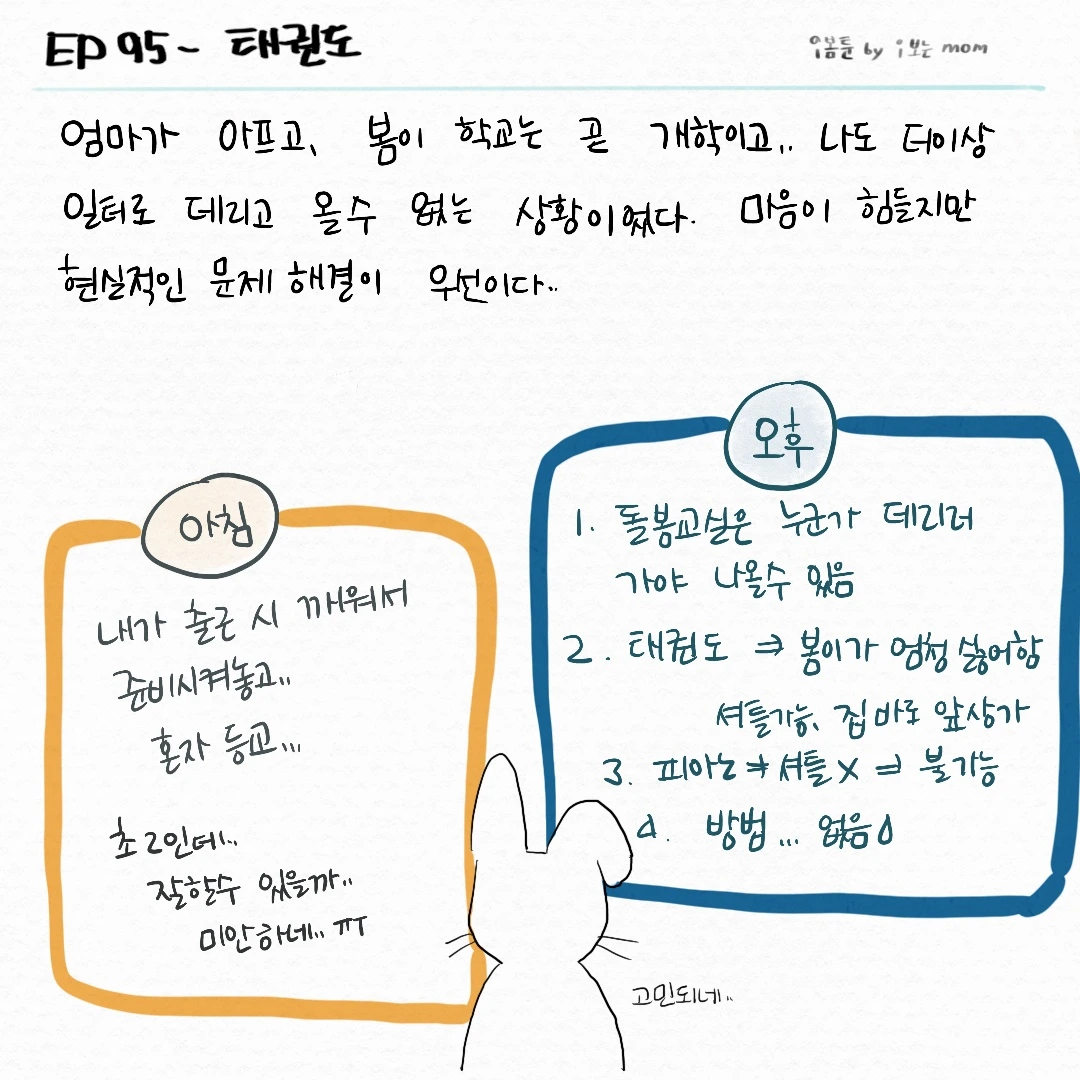 EP 95 - 태권도
우봄툰 by i보는 mom
엄마가 아프고, 봄이 학교는 곧 개학이고.. 나도 더이상
일터로 데리고 올수 없는 상황이였다. 마음이 힘들지만
현실적인 문제 해결이 우선이다..
아침
내가 출근 시 깨워서
준비시켜놓고..
혼자 등교...
초2인데..
잘할수 있을까..
미안하네.. ㅠㅜ
오후
1. 돌봄교실은 누군가 데리러
가야 나올수 있음
2. 태권도 ⇒ 봄이가 엄청 싫어함
셔틀가능, 집 바로 앞상가
3. 피아노 ⇒ 셔틀 X ⇒ 불가능
4. 방법... 없음
고민되네..